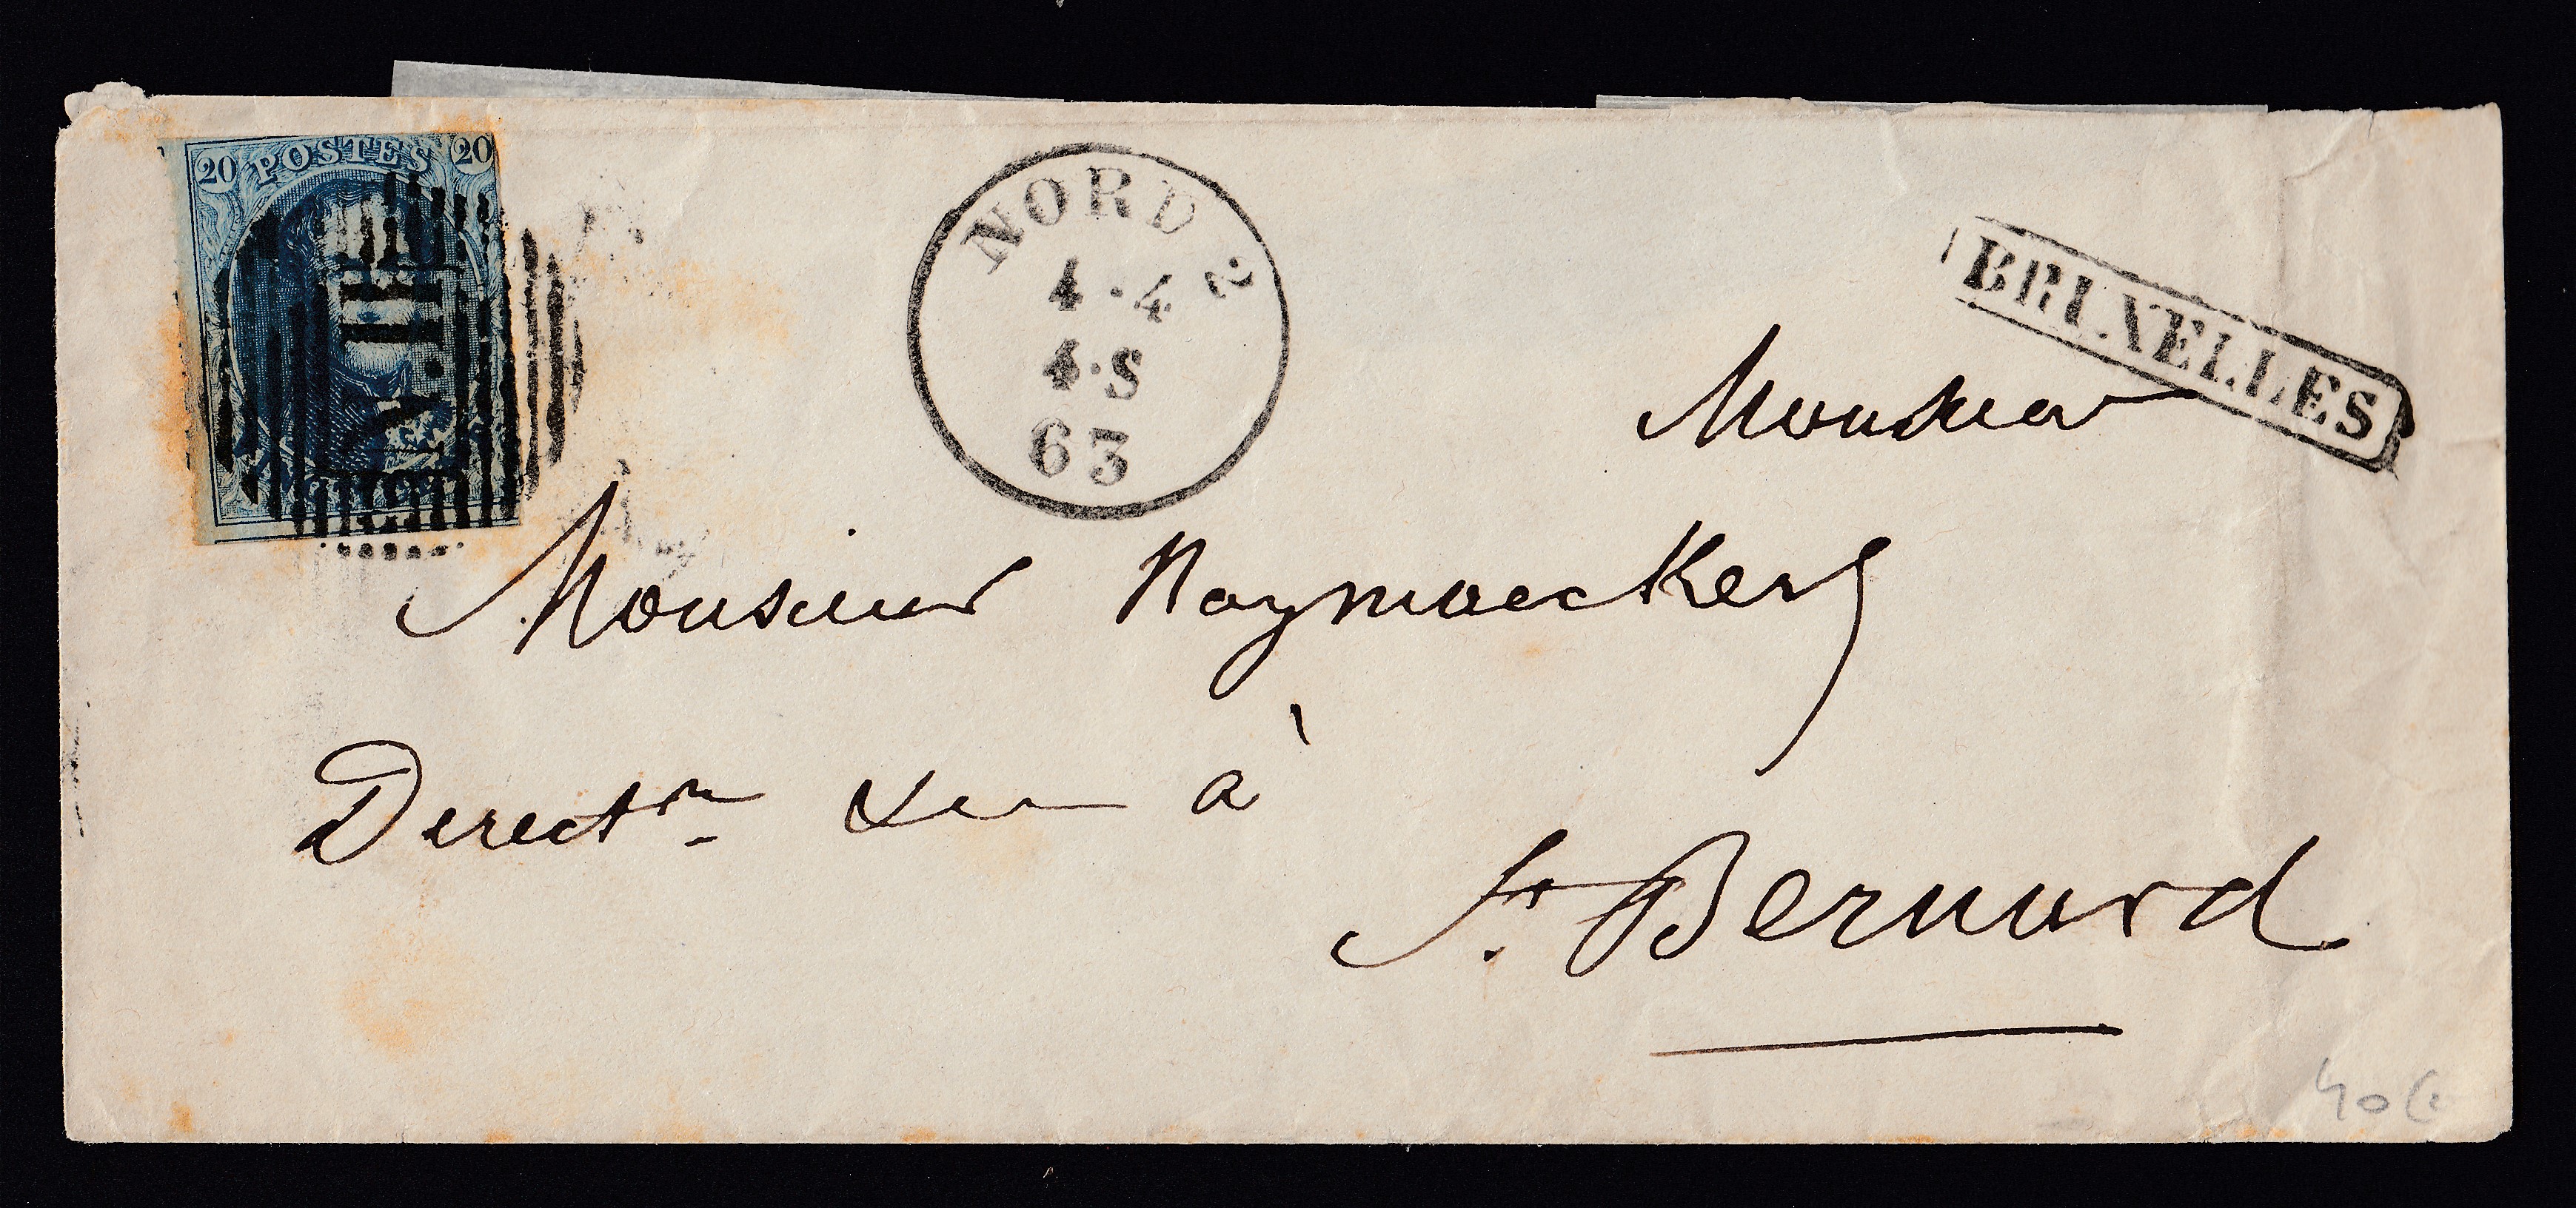 20 POSTES 20
N.II
NORD 2
4·4
4·S
63
BRUXELLES
Monsieur
Monsieur Raymaeckers
Direct^r à
S^t. Bernard
40€